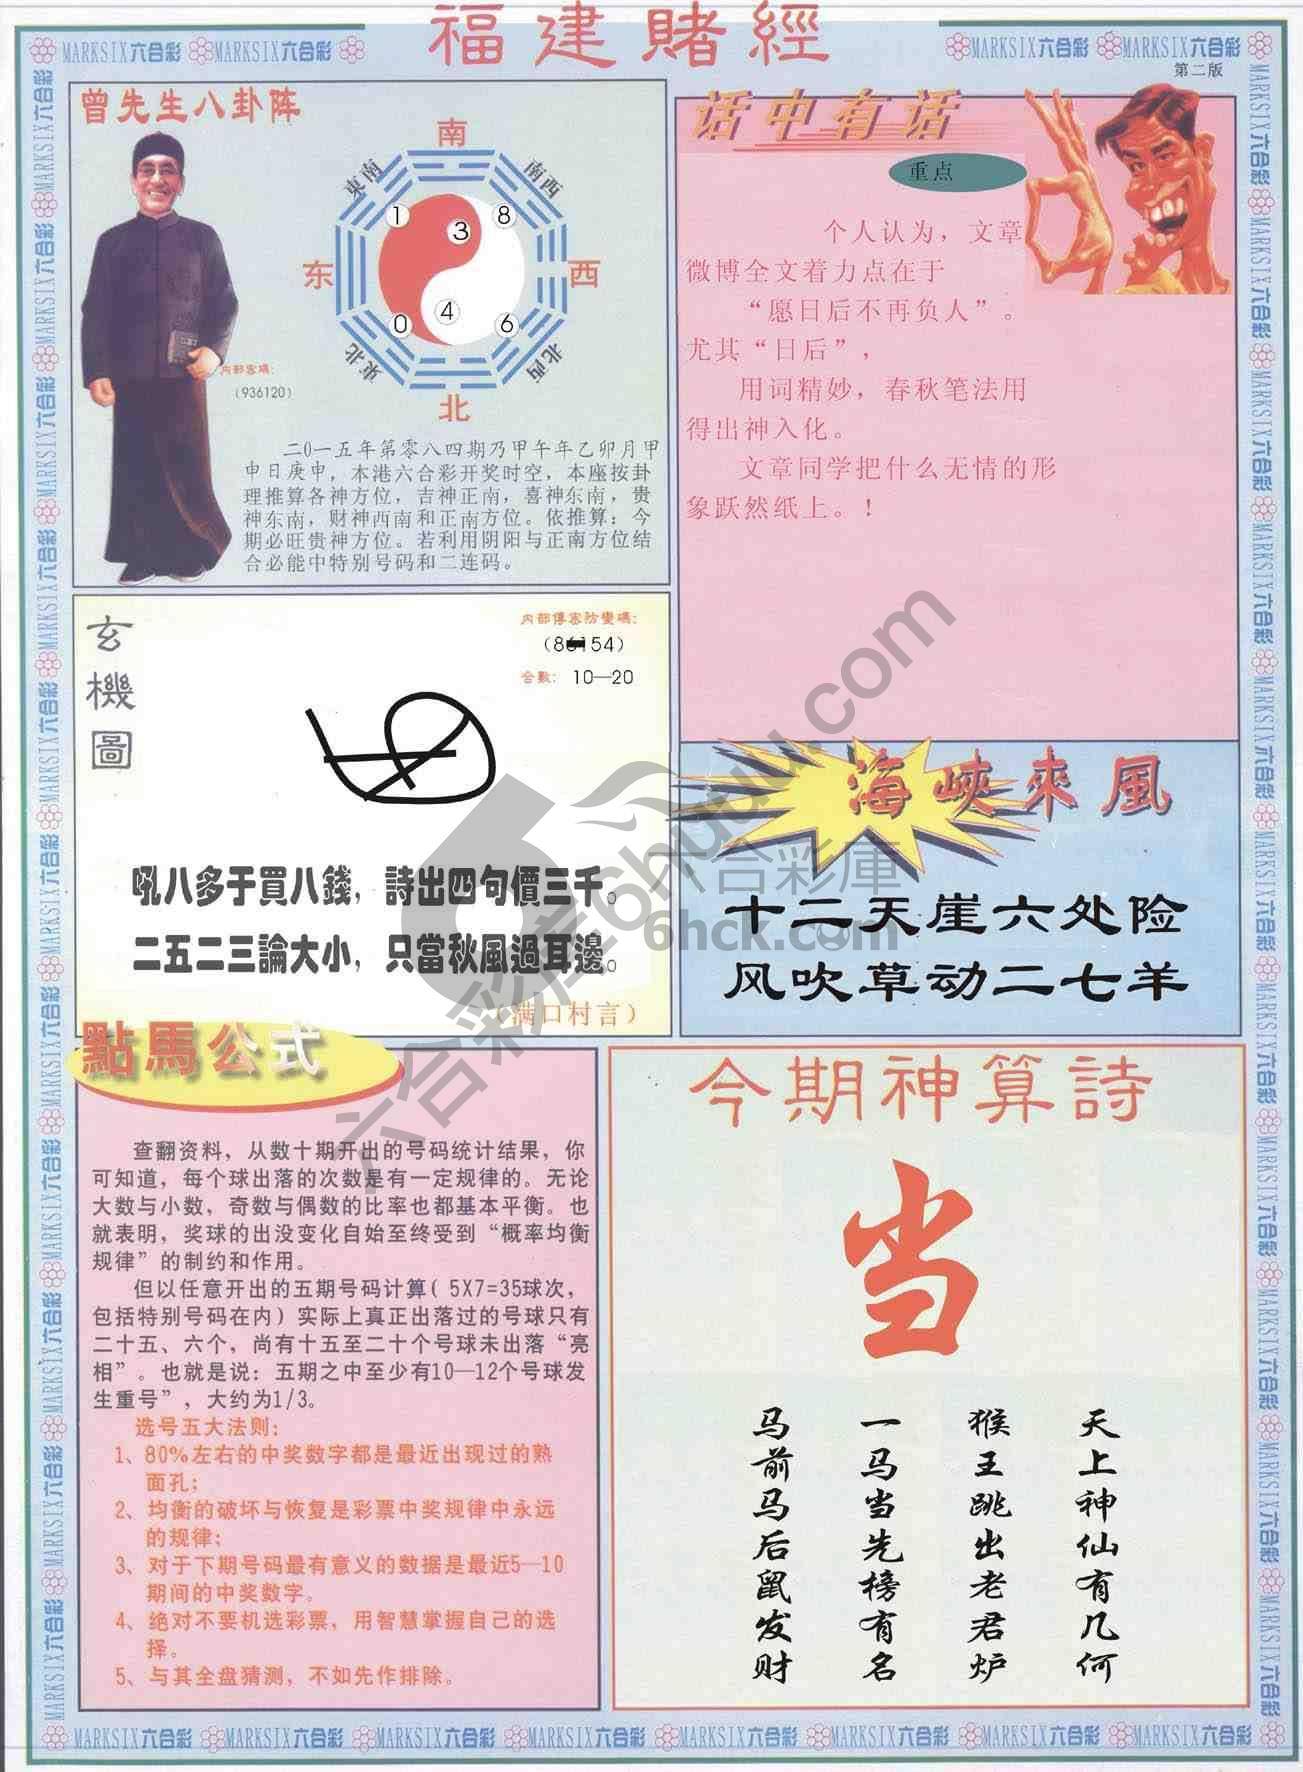 福建賭經
MARKSIX六合彩 MARKSIX六合彩
MARKSIX六合彩 MARKSIX六合彩
第二版
曾先生八卦阵
南
東南
南西
1
3
8
东
西
0
4
6
東北
北西
北
内部密碼:
(936120)
二0一五年第零八四期乃甲午年乙卯月甲
申日庚申，本港六合彩开奖时空，本座按卦
理推算各神方位，吉神正南，喜神东南，贵
神东南，财神西南和正南方位。依推算：今
期必旺贵神方位。若利用阴阳与正南方位结
合必能中特别号码和二连码。
话中有话
重点
个人认为，文章
微博全文着力点在于
“愿日后不再负人”。
尤其“日后”，
用词精妙，春秋笔法用
得出神入化。
文章同学把什么无情的形
象跃然纸上。！
玄機圖
内部傳密防變碼:
154)
合數: 10—20
吼八多于買八錢，詩出四句價三千。
二五二三論大小，只當秋風過耳邊。
（满口村言）
海峽來風
十二天崖六处险
风吹草动二七羊
六合彩庫
6hck.com
點馬公式
查翻资料，从数十期开出的号码统计结果，你
可知道，每个球出落的次数是有一定规律的。无论
大数与小数，奇数与偶数的比率也都基本平衡。也
就表明，奖球的出没变化自始至终受到“概率均衡
规律”的制约和作用。
但以任意开出的五期号码计算( 5X7=35球次，
包括特别号码在内）实际上真正出落过的号球只有
二十五、六个，尚有十五至二十个号球未出落“亮
相”。也就是说：五期之中至少有10—12个号球发
生重号”，大约为1/3。
选号五大法则:
1、80%左右的中奖数字都是最近出现过的熟
面孔;
2、均衡的破坏与恢复是彩票中奖规律中永远
的规律;
3、对于下期号码最有意义的数据是最近5—10
期间的中奖数字。
4、绝对不要机选彩票，用智慧掌握自己的选
择。
5、与其全盘猜测，不如先作排除。
今期神算詩
当
天上神仙有几何
猴王跳出老君炉
一马当先榜有名
马前马后鼠发财
MARKSIX六合彩 MARKSIX六合彩 MARKSIX六合彩 MARKSIX六合彩 MARKSIX六合彩 MARKSIX六合彩 MARKSIX六合彩 MARKSIX六合彩